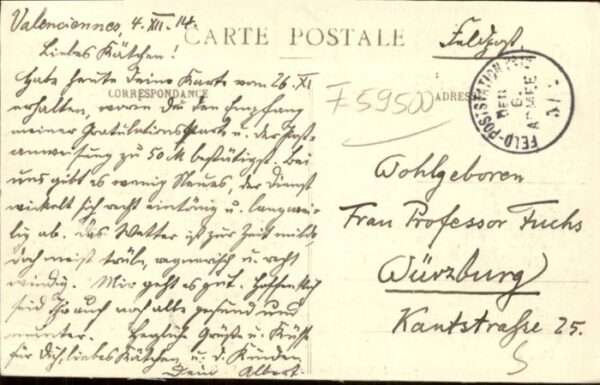 Valenciennes, 4. XII. 14.
Liebes Kätchen!
CARTE POSTALE
Feldpost
CORRESPONDANCE
ADRESSE
F 59500
FELD-POSTSTATION
DER
6
ARMEE
Habe heute Deine Karte vom 26. XI
erhalten, worin Du den Empfang
meiner Gratulationskarte u. der Post-
anweisung zu 50 M bestätigst. Bei
uns gibt es wenig Neues, der Dienst
wickelt sich recht eintönig u. langwei-
lig ab. Das Wetter ist zur Zeit mild,
doch meist trüb, regnerisch u. recht
windig. Mir geht es gut. Hoffentlich
seid Ihr auch noch alle gesund und
munter. Herzliche Grüße u. Küsse
für Dich, liebes Kätchen u. d. Kinder
Dein Albert.
Wohlgeboren
Frau Professor Fuchs
Würzburg
Kantstraße 25.